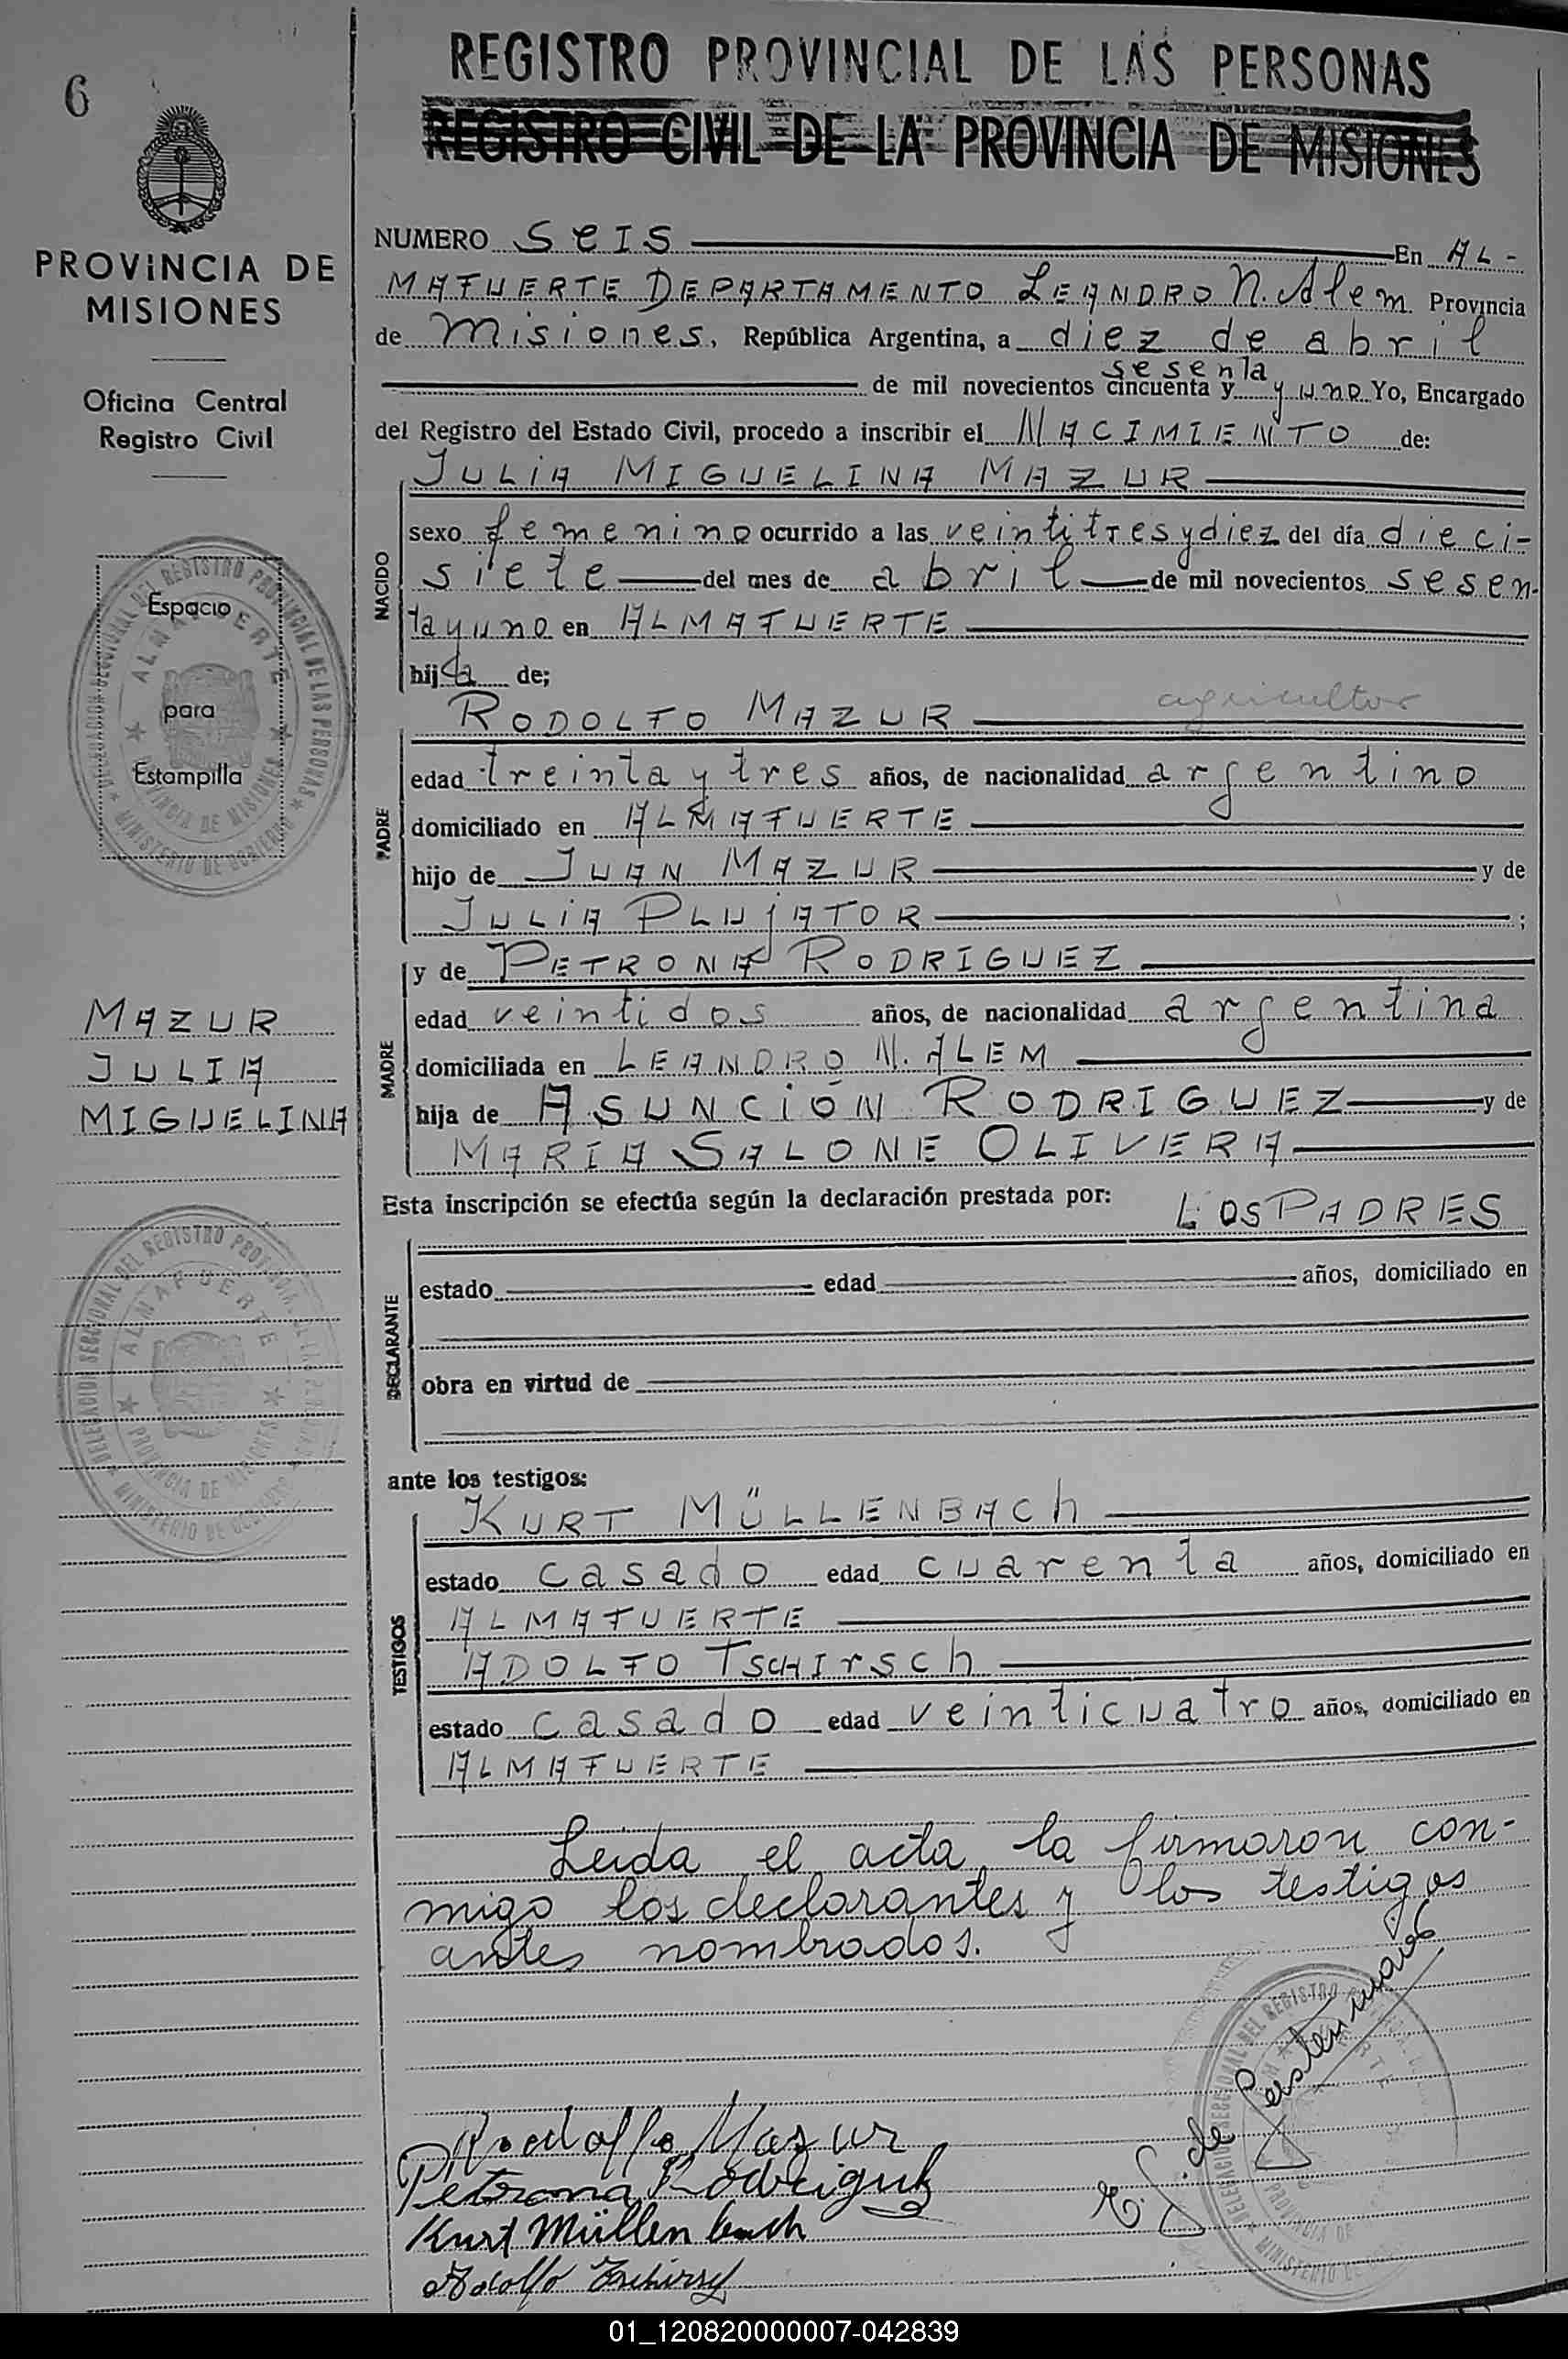 6
PROVINCIA DE
MISIONES
Oficina Central
Registro Civil
Espacio
para
Estampilla
MAZUR
JULIA
MIGUELINA
REGISTRO PROVINCIAL DE LAS PERSONAS
REGISTRO CIVIL DE LA PROVINCIA DE MISIONES
NUMERO SEIS En AL-
MAFUERTE DEPARTAMENTO LEANDRO N. Alem. Provincia
de Misiones, República Argentina, a diez de abril
sesenta
de mil novecientos cincuenta y y uno Yo, Encargado
del Registro del Estado Civil, procedo a inscribir el NACIMIENTO de:
JULIA MIGUELINA MAZUR
NACIDO
sexo femenino ocurrido a las veintitres y diez del día dieci-
siete del mes de abril de mil novecientos sesen-
ta y uno en ALMAFUERTE
hija de;
RODOLFO MAZUR agricultor
PADRE
edad treinta y tres años, de nacionalidad argentino
domiciliado en ALMAFUERTE
hijo de JUAN MAZUR y de
JULIA PLUJATOR ;
MADRE
y de PETRONA RODRIGUEZ
edad veintidos años, de nacionalidad argentina
domiciliada en LEANDRO N. ALEM
hija de ASUNCIÓN RODRIGUEZ y de
MARÍA SALONE OLIVERA
Esta inscripción se efectúa según la declaración prestada por: LOS PADRES
DECLARANTE
estado edad años, domiciliado en
obra en virtud de
ante los testigos:
KURT MÜLLENBACh
TESTIGOS
estado casado edad cuarenta años, domiciliado en
ALMAFUERTE
ADOLFO TSCHIrSCh
estado casado edad veinticuatro años, domiciliado en
ALMAFUERTE
Leida el acta, la firmaron con-
migo los declarantes y los testigos
antes nombrados.
Rodolfo Mazur
Petrona Rodriguez
Kurt Müllenbach
Adolfo Tschirsch
01_120820000007-042839